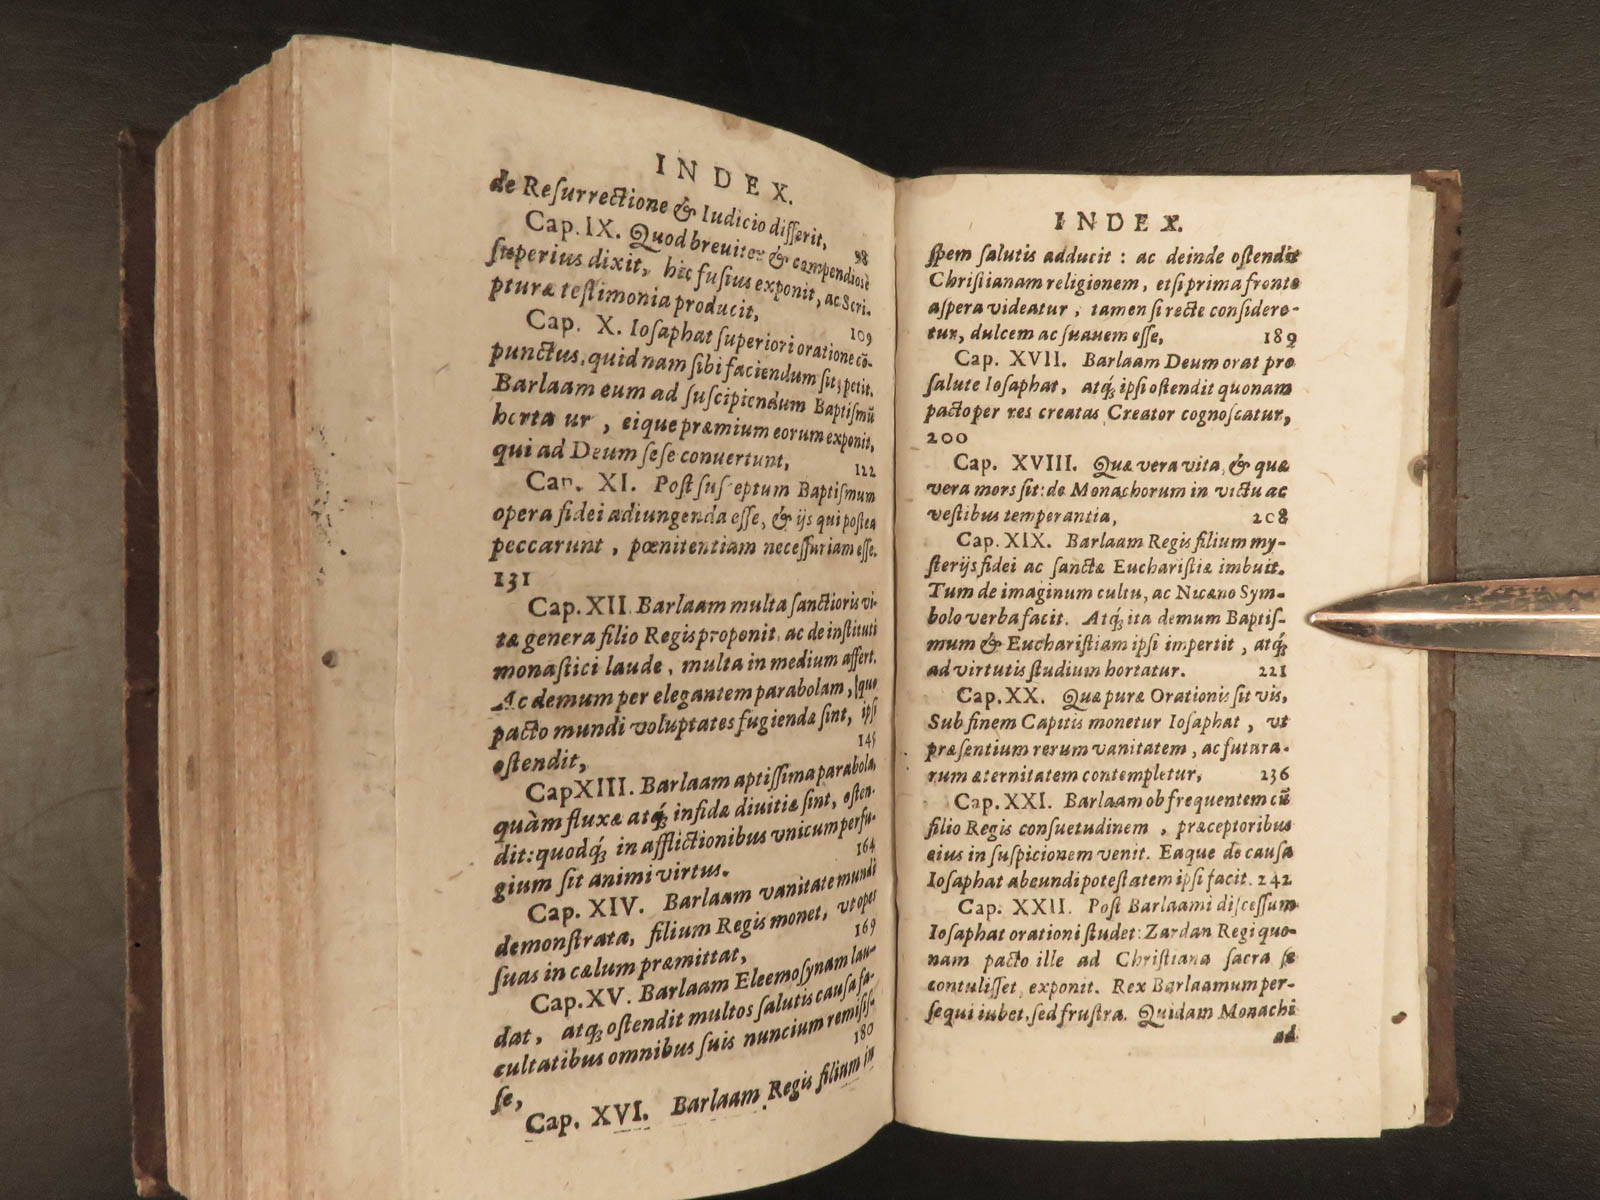 INDEX.
de Reſurrectione & Iudicio diſſerit, 98
Cap. IX. Quod breuiter & compendiosè
ſuperius dixit, hic fuſius exponit, ac Scri-
pturæ teſtimonia producit, 109
Cap. X. Ioſaphat ſuperiori oratione cō-
punctus, quidnam ſibi faciendum ſit, petit.
Barlaam eum ad ſuſcipiendum Baptiſmū
horta ur, eique præmium eorum exponit,
qui ad Deum ſeſe conuertunt, 122
Cap. XI. Poſt ſuſceptum Baptiſmum
opera fidei adiungenda eſſe, & ijs qui poſtea
peccarunt, pœnitentiam neceſſariam eſſe.
131
Cap. XII. Barlaam multa ſanctioris vi-
tæ genera filio Regis proponit, ac de inſtituti
monaſtici laude, multa in medium affert.
Ac demum per elegantem parabolam, quo
pacto mundi voluptates fugiendæ ſint, ipſi
oſtendit, 145
Cap XIII. Barlaam aptiſſima parabola,
quàm fluxæ atq; infidæ diuitiæ ſint, oſten-
dit: quodq; in afflictionibus vnicum perfu-
gium ſit animi virtus. 164
Cap. XIV. Barlaam vanitate mundi
demonſtrata, filium Regis monet, vt opes
ſuas in cælum præmittat, 169
Cap. XV. Barlaam Eleemoſynam lau-
dat, atq; oſtendit multos ſalutis cauſa fa-
cultatibus omnibus ſuis nuncium remiſiſ-
ſe, 180
Cap. XVI. Barlaam Regis filium in
INDEX.
ſpem ſalutis adducit : ac deinde oſtendit
Chriſtianam religionem, etſi prima fronte
aſpera videatur, tamen ſi recte conſidere-
tur, dulcem ac ſuauem eſſe, 189
Cap. XVII. Barlaam Deum orat pro
ſalute Ioſaphat, atq; ipſi oſtendit quonam
pacto per res creatas Creator cognoſcatur,
200
Cap. XVIII. Quæ vera vita, & quæ
vera mors ſit: de Monachorum in victu ac
veſtibus temperantia, 208
Cap. XIX. Barlaam Regis filium my-
ſterijs fidei ac ſanctæ Euchariſtiæ imbuit.
Tum de imaginum cultu, ac Nicæno Sym-
bolo verba facit. Atq; ita demum Baptiſ-
mum & Euchariſtiam ipſi impertit, atq;
ad virtutis ſtudium hortatur. 221
Cap. XX. Quæ puræ Orationis ſit vis,
Sub finem Capitis monetur Ioſaphat, vt
præſentium rerum vanitatem, ac futura-
rum æternitatem contempletur, 236
Cap. XXI. Barlaam ob frequentem cū
filio Regis conſuetudinem, præceptoribus
eius in ſuſpicionem venit. Eaque de cauſa
Ioſaphat abeundi poteſtatem ipſi facit. 242
Cap. XXII. Poſt Barlaami diſceſſum
Ioſaphat orationi ſtudet: Zardan Regi quo-
nam pacto ille ad Chriſtiana ſacra ſe
contuliſſet, exponit. Rex Barlaamum per-
ſequi iubet, ſed fruſtra. Quidam Monachi
ad